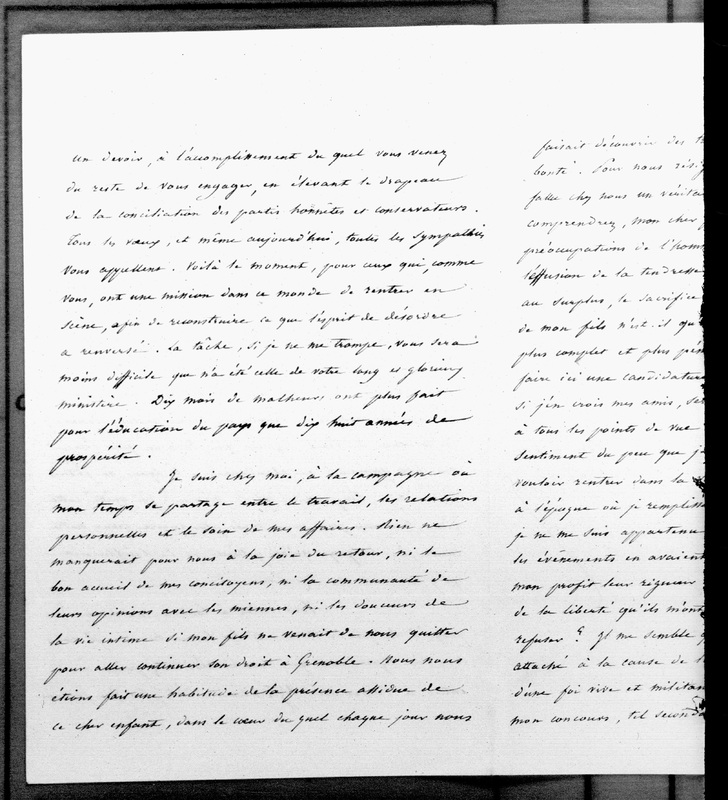 un devoir, à l'accomplissement du quel vous venez
du reste de vous engager, en élevant le drapeau
de la conciliation des partis honnêtes et conservateurs.
Tous les vœux, et même aujourd'hui, toutes les sympathies
vous appellent. Voilà le moment, pour ceux qui, comme
vous, ont une mission dans ce monde de rentrer en
scène, afin de reconstruire ce que l'esprit de désordre
a renversé. La tâche, si je ne me trompe, vous sera
moins difficile que n'a été celle de votre long et glorieux
ministère. Dix mois de malheurs ont plus fait
pour l'éducation du pays que dix huit années de
prospérité.
Je suis chez moi, à la campagne où
mon temps se partage entre le travail, les relations
personnelles et le soin de mes affaires. Rien ne
manquerait pour nous à la joie du retour, ni le
bon accueil de mes concitoyens, ni la communauté de
leurs opinions avec les miennes, ni les douceurs de
la vie intime si mon fils ne venait de nous quitter
pour aller continuer son droit à Grenoble. Nous nous
étions fait une habitude de la présence assidue de
ce cher enfant, dans le cœur du quel chaque jour nous
faisait découvrir des
bonté. Pour nous
fallu chez nous un
comprendrez, mon cher
préoccupations de
l'effusion de la tendresse
au surplus, le sacrifice
de mon fils n'est-il
plus complet et plus
faire ici une candidature
si j'en crois mes amis,
à tous les points de vue
sentiment du peu que
vouloir rentrer dans la
à l'époque où je
je ne me suis appartenu
les événements en avaient
mon profit leur rigueur
de la liberté qu'ils m'ont
refuser? Il me semble
attaché à la cause de
d'une foi vive et
mon concours, tel